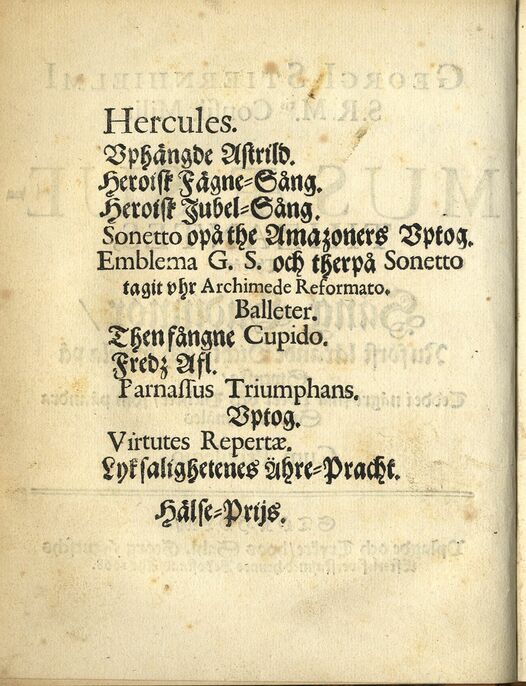 Hercules.
Vphängde Astrild.
Heroisk Fägne-Sång.
Heroisk Jubel-Sång.
Sonetto opå the Amazoners Vptog.
Emblema G. S. och therpå Sonetto
tagit vhr Archimede Reformato.
Balleter.
Then fångne Cupido.
Fredz Afl.
Parnassus Triumphans.
Vptog.
Virtutes Repertæ.
Lyksalighetenes Ähre-Pracht.
Hälse-Prijs.